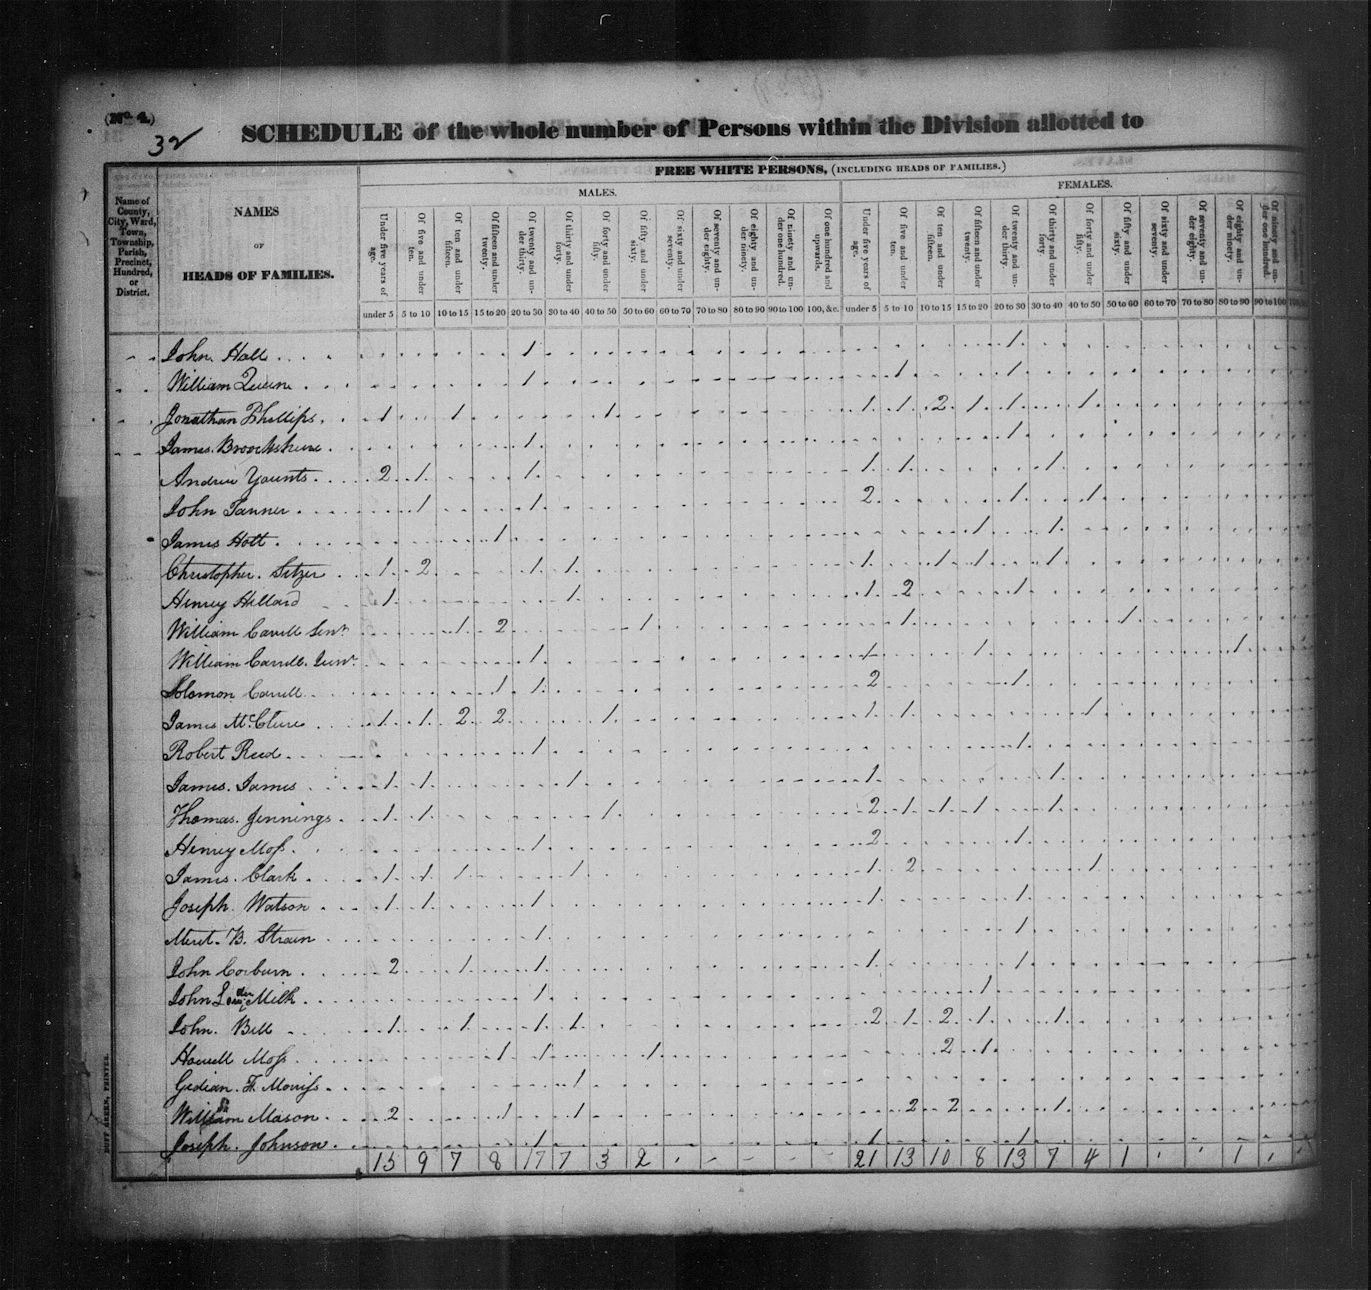 (No. 4.)
32
SCHEDULE of the whole number of Persons within the Division allotted to
FREE WHITE PERSONS, (INCLUDING HEADS OF FAMILIES.)
MALES. FEMALES.
Name of County, City, Ward, Town, Township, Parish, Precinct, Hundred, or District.
NAMES
OF
HEADS OF FAMILIES.
Under five years of age. Of five and under ten. Of ten and under fifteen. Of fifteen and under twenty. Of twenty and under thirty. Of thirty and under forty. Of forty and under fifty. Of fifty and under sixty. Of sixty and under seventy. Of seventy and under eighty. Of eighty and under ninety. Of ninety and under one hundred. Of one hundred and upwards. Under five years of age. Of five and under ten. Of ten and under fifteen. Of fifteen and under twenty. Of twenty and under thirty. Of thirty and under forty. Of forty and under fifty. Of fifty and under sixty. Of sixty and under seventy. Of seventy and under eighty. Of eighty and under ninety. Of ninety and under one hundred.
under 5 5 to 10 10 to 15 15 to 20 20 to 30 30 to 40 40 to 50 50 to 60 60 to 70 70 to 80 80 to 90 90 to 100 100, &c. under 5 5 to 10 10 to 15 15 to 20 20 to 30 30 to 40 40 to 50 50 to 60 60 to 70 70 to 80 80 to 90 90 to 100
John Hall 1 1
William Queen 1 1 1
Jonathan Phillips 1 1 1 1 1 2 1 1 1
James 1 1
Andrew Younts 2 1 1 1 1 1
John Tanner 1 1 2 1 1
James Hott 1 1 1
Christopher Sitzer 1 2 1 1 1 1 1 1
Henry Hillard 1 1 1 2 1
William Carrell Senr 1 2 1 1 1
William Carrell Junr 1 1 1 1
Solomon Carrell 1 1 2 1
James McClure 1 1 2 2 1 1 1 1
Robert Reed 1 1
James James 1 1 1 1 1
Thomas Jennings 1 1 1 2 1 1 1 1
Henry Moss 1 2 1
James Clark 1 1 1 1 1 2 1
Joseph Watson 1 1 1 1 1
B. Strain 1 1
John Corburn 2 1 1 1 1
John Milk 1 1
John Bell 1 1 1 1 2 1 2 1 1
Howell Moss 1 1 1 2 1
Gedian F. Morriss 1
William Mason 2 1 1 2 2 1
Joseph Johnson 1 1 1
15 9 7 8 17 7 3 2 21 13 10 8 13 7 4 1 1
DUFF GREEN, PRINTER.